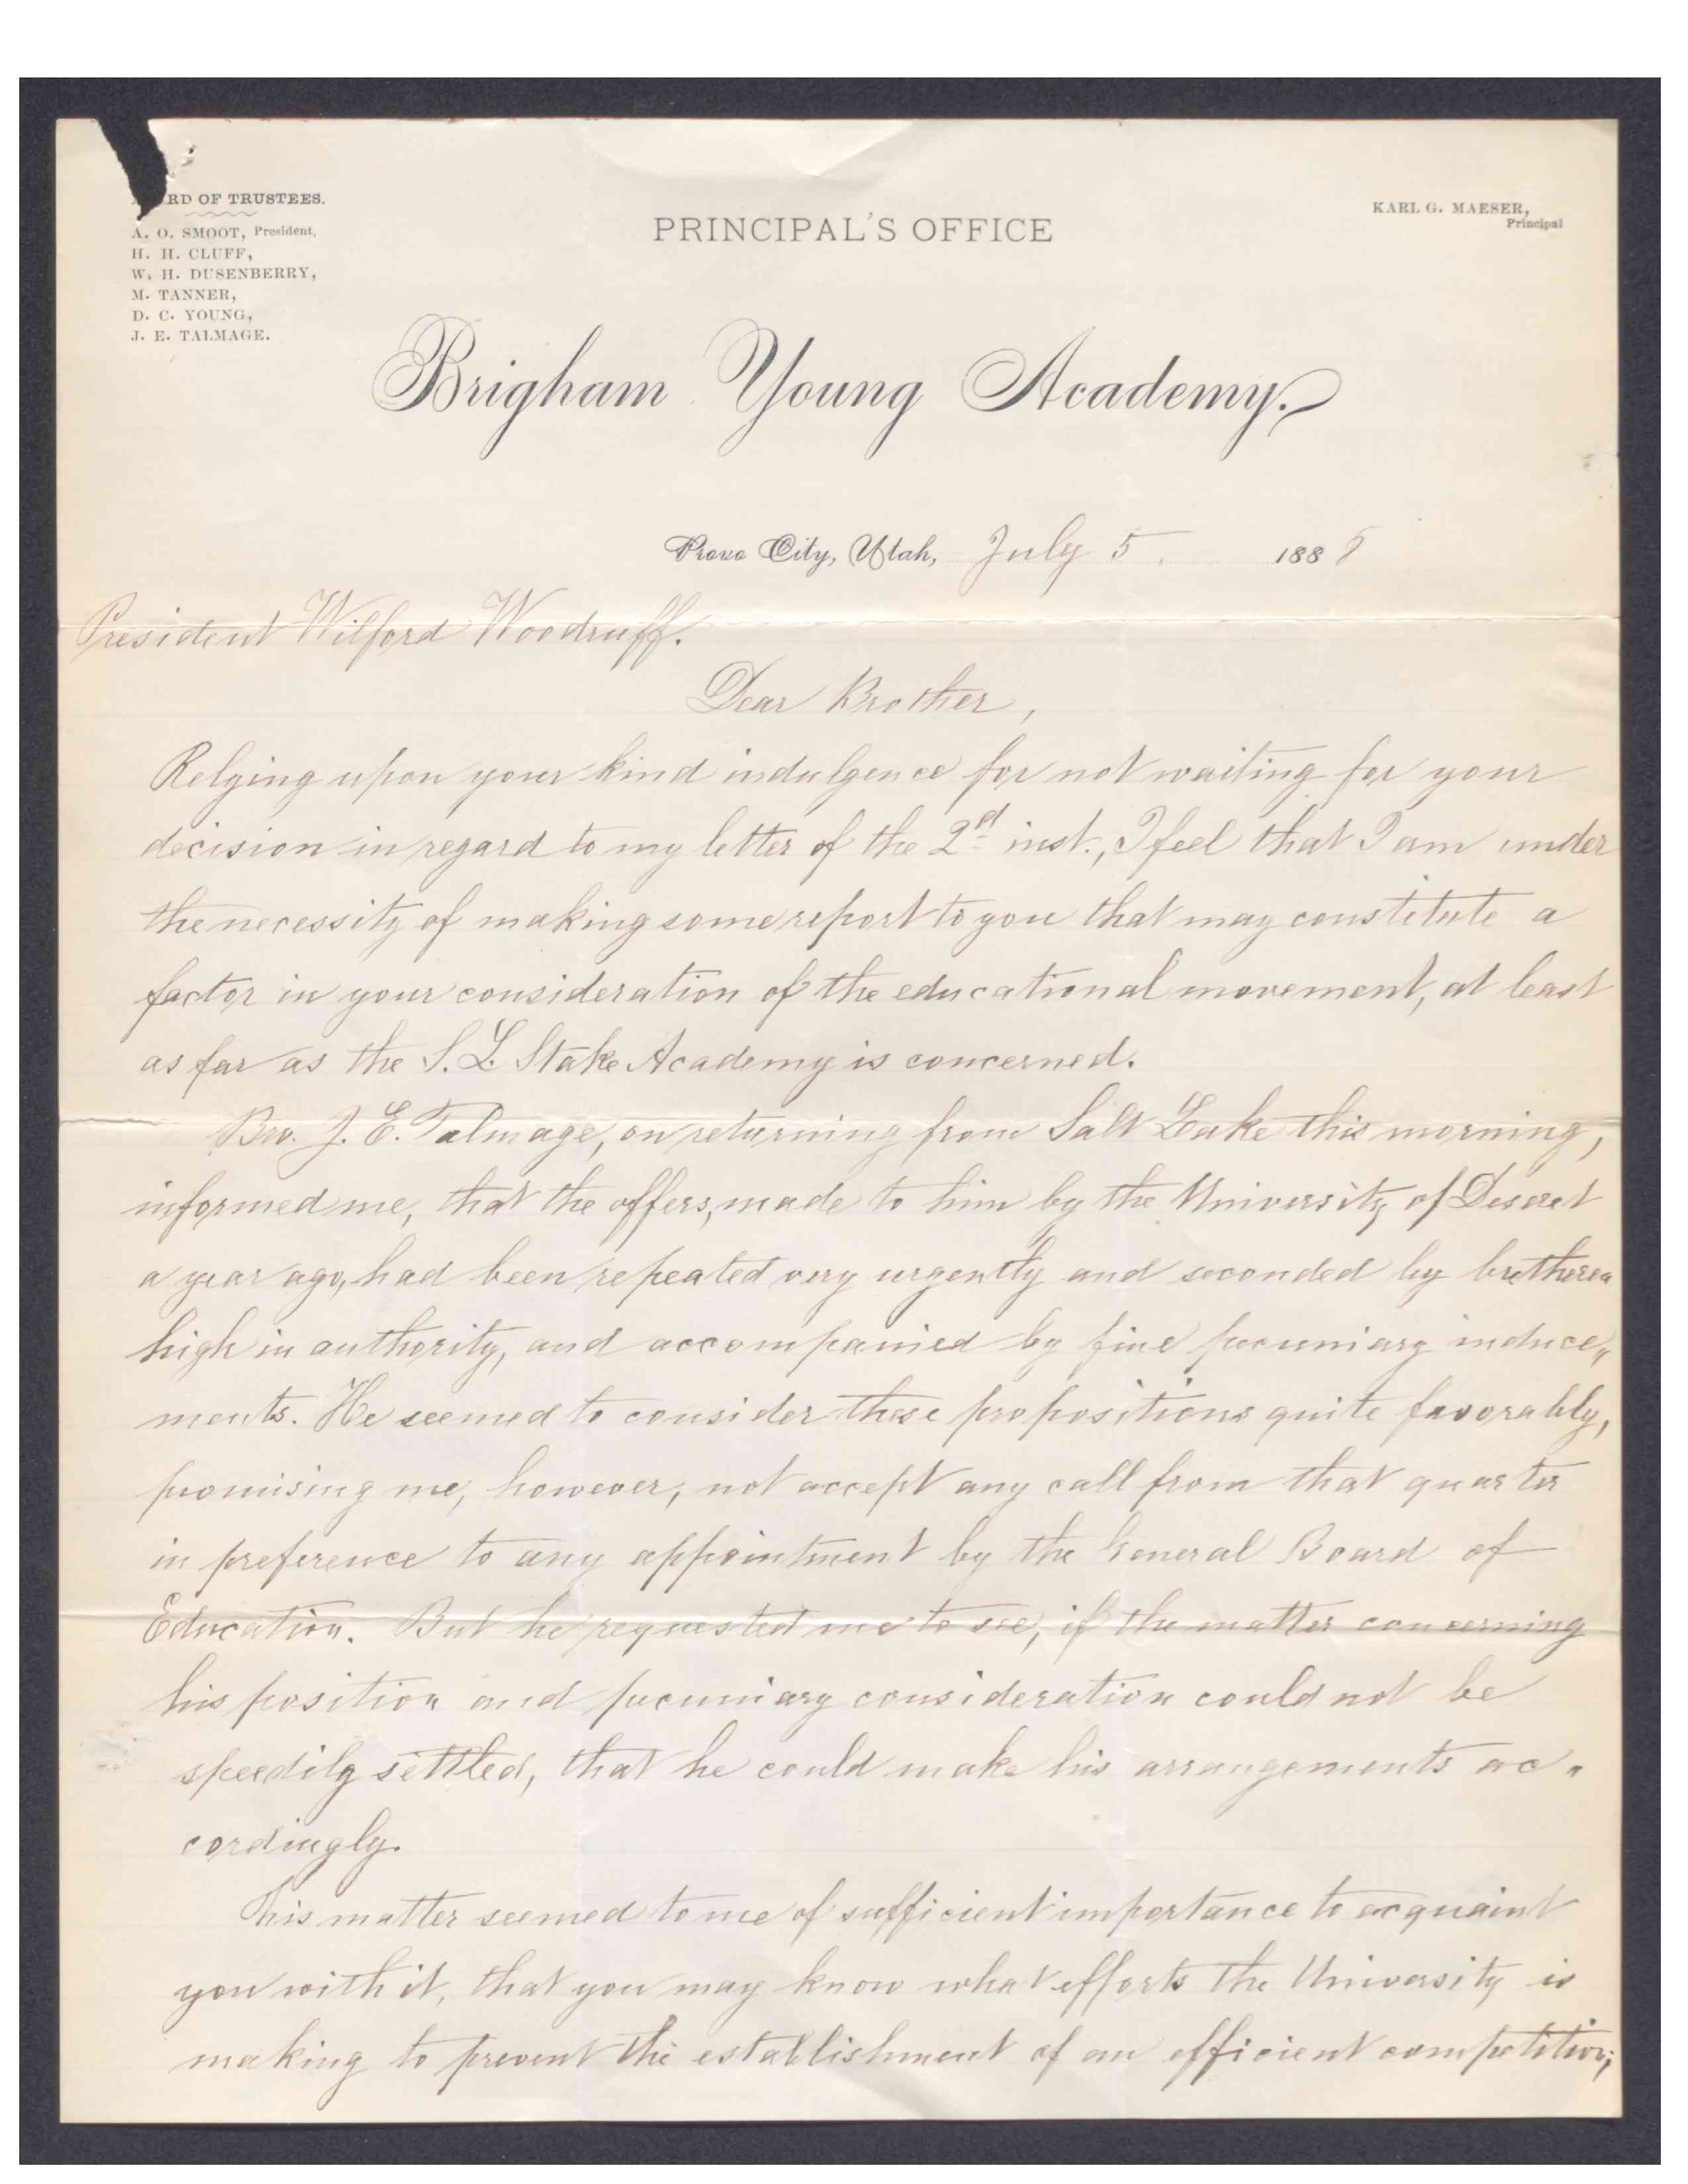 RD OF TRUSTEES.
A. O. SMOOT, President,
H. H. CLUFF,
W. H. DUSENBERRY,
M. TANNER,
D. C. YOUNG,
J. E. TALMAGE.
PRINCIPAL'S OFFICE
KARL G. MAESER,
Principal
Brigham Young Academy.
Provo City, Utah, July 5. 1888
President Wilford Woodruff.
Dear Brother,
Relying upon your kind indulgence for not waiting for your
decision in regard to my letter of the 2d inst., I feel that I am under
the necessity of making some report to you that may constitute a
factor in your consideration of the educational movement, at least
as far as the S. L. Stake Academy is concerned.
Bro. J. E. Talmage, on returning from Salt Lake this morning,
informed me, that the offers, made to him by the University of Deseret
a year ago, had been repeated very urgently and seconded by bretheren
high in authority, and accompanied by fine pecuniary induce„
ments. He seemed to consider these propositions quite favorably,
promising me, however, not accept any call from that quarter
in preference to any appointment by the General Board of
Education. But he requested me to see, if the matter concerning
his position and pecuniary consideration could not be
speedily settled, that he could make his arrangements ac„
cordingly.
This matter seemed to me of sufficient importance to acquaint
you with it, that you may know what efforts the University is
making to prevent the establishment of an efficient competition;